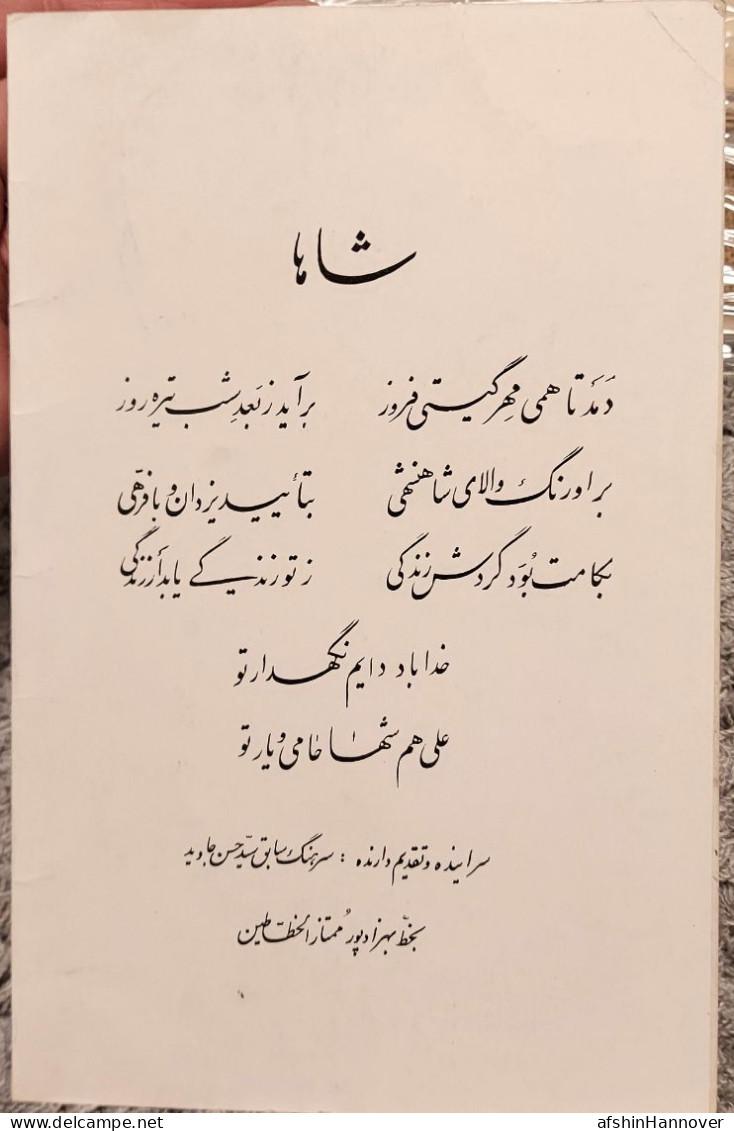 شاها
دَمَد تا همی مهر گیتی فروز    برآید ز بَعدِ شب تیره روز
بر اورنگ والای شاهنشهی    بتأیید یزدان و با فرّهی
بکامت بُوَد گردش زندگی    ز تو زندگی یابد ارزندگی
خدا باد دایم نگهدار تو
علی هم شها حامی و یار تو
سراینده و تقدیم دارنده : سرهنگ سابق سیّد حسن جاوید
بخطّ بهزادپور مُمتاز الخطّاطین
delcampe.net
afshinHannover